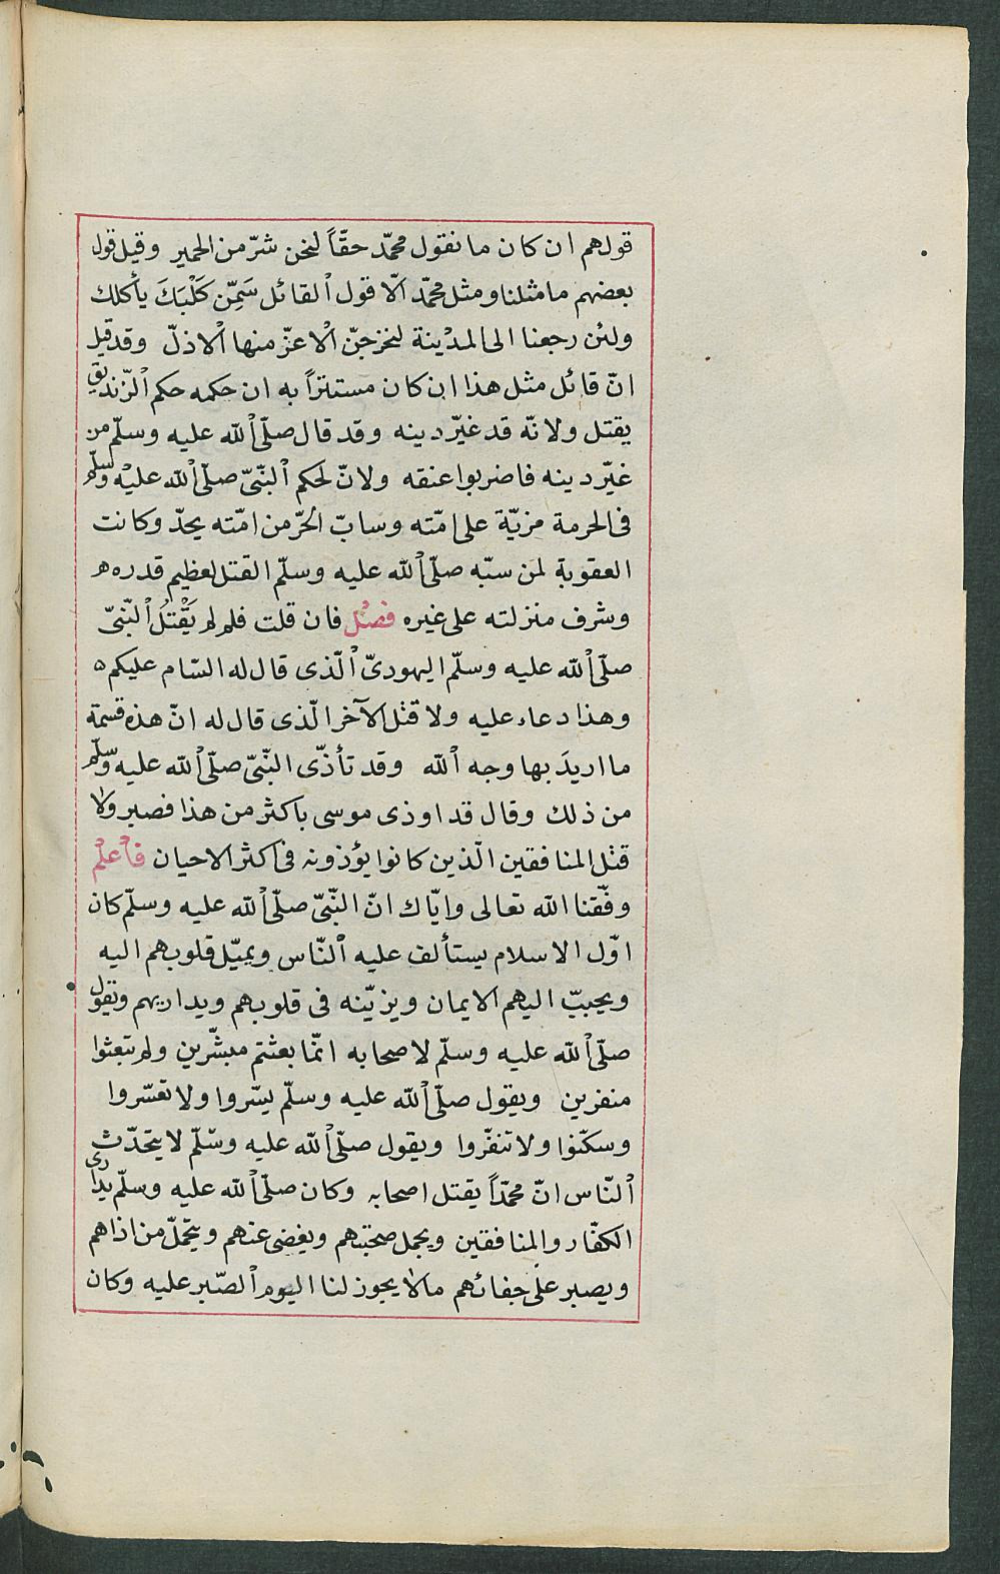 قولهم ان كان ما نقول محمّد حقّاً لنحن شرّ من الحمير وقيل قول
بعضهم ما مثلنا ومثل محمّد الّا قول القائل سَمِّن كَلْبَكَ يأكلك
ولئن رجعنا الى المدينة لنخرجنّ الاعزّ منها الاذلّ وقد قيل
انّ قائل مثل هذا ان كان مستتراً به ان حكمه حكم الزّنديق
يقتل ولانّه قد غيّر دينه وقد قال صلّى الله عليه وسلّم من
غيّر دينه فاضربوا عنقه ولانّ لحكم النّبىّ صلّى الله عليه وسلّم
فى الحرمة مزيّة على امّته وسابّ الحرّ من امّته يحدّ وكانت
العقوبة لمن سبّه صلّى الله عليه وسلّم القتل لعظيم قدره
وشرف منزلته على غيره فصل فان قلت فلم لم يَقْتُلُ النّبىّ
صلّى الله عليه وسلّم اليهودىّ الّذى قال له السّام عليكم
وهذا دعاء عليه ولا قتل الآخر الّذى قال له انّ هذه قسمة
ما اريدَ بها وجه الله وقد تأذّى النّبىّ صلّى الله عليه وسلّم
من ذلك وقال قد اوذى موسى باكثر من هذا فصبر ولا
قتل المنافقين الّذين كانوا يؤذونه فى اكثر الاحيان فاعلم
وفّقنا الله تعالى وايّاك انّ النّبىّ صلّى الله عليه وسلّم كان
اوّل الاسلام يستألف عليه النّاس ويميّل قلوبهم اليه
ويحبّب اليهم الايمان ويزيّنه فى قلوبهم ويداريهم ويقول
صلّى الله عليه وسلّم لاصحابه انّما بعثتم مبشّرين ولم تبعثوا
منفرين ويقول صلّى الله عليه وسلّم يسّروا ولا تعسّروا
وسكّنوا ولا تنفّروا ويقول صلّى الله عليه وسلّم لا يتحدّث
النّاس انّ محمّداً يقتل اصحابه وكان صلّى الله عليه وسلّم يدارى
الكفّار والمنافقين ويجمل صحبتهم ويغضى عنهم ويتحمّل من اذاهم
ويصبر على جفائهم ما لا يجوز لنا اليوم الصّبر عليه وكان